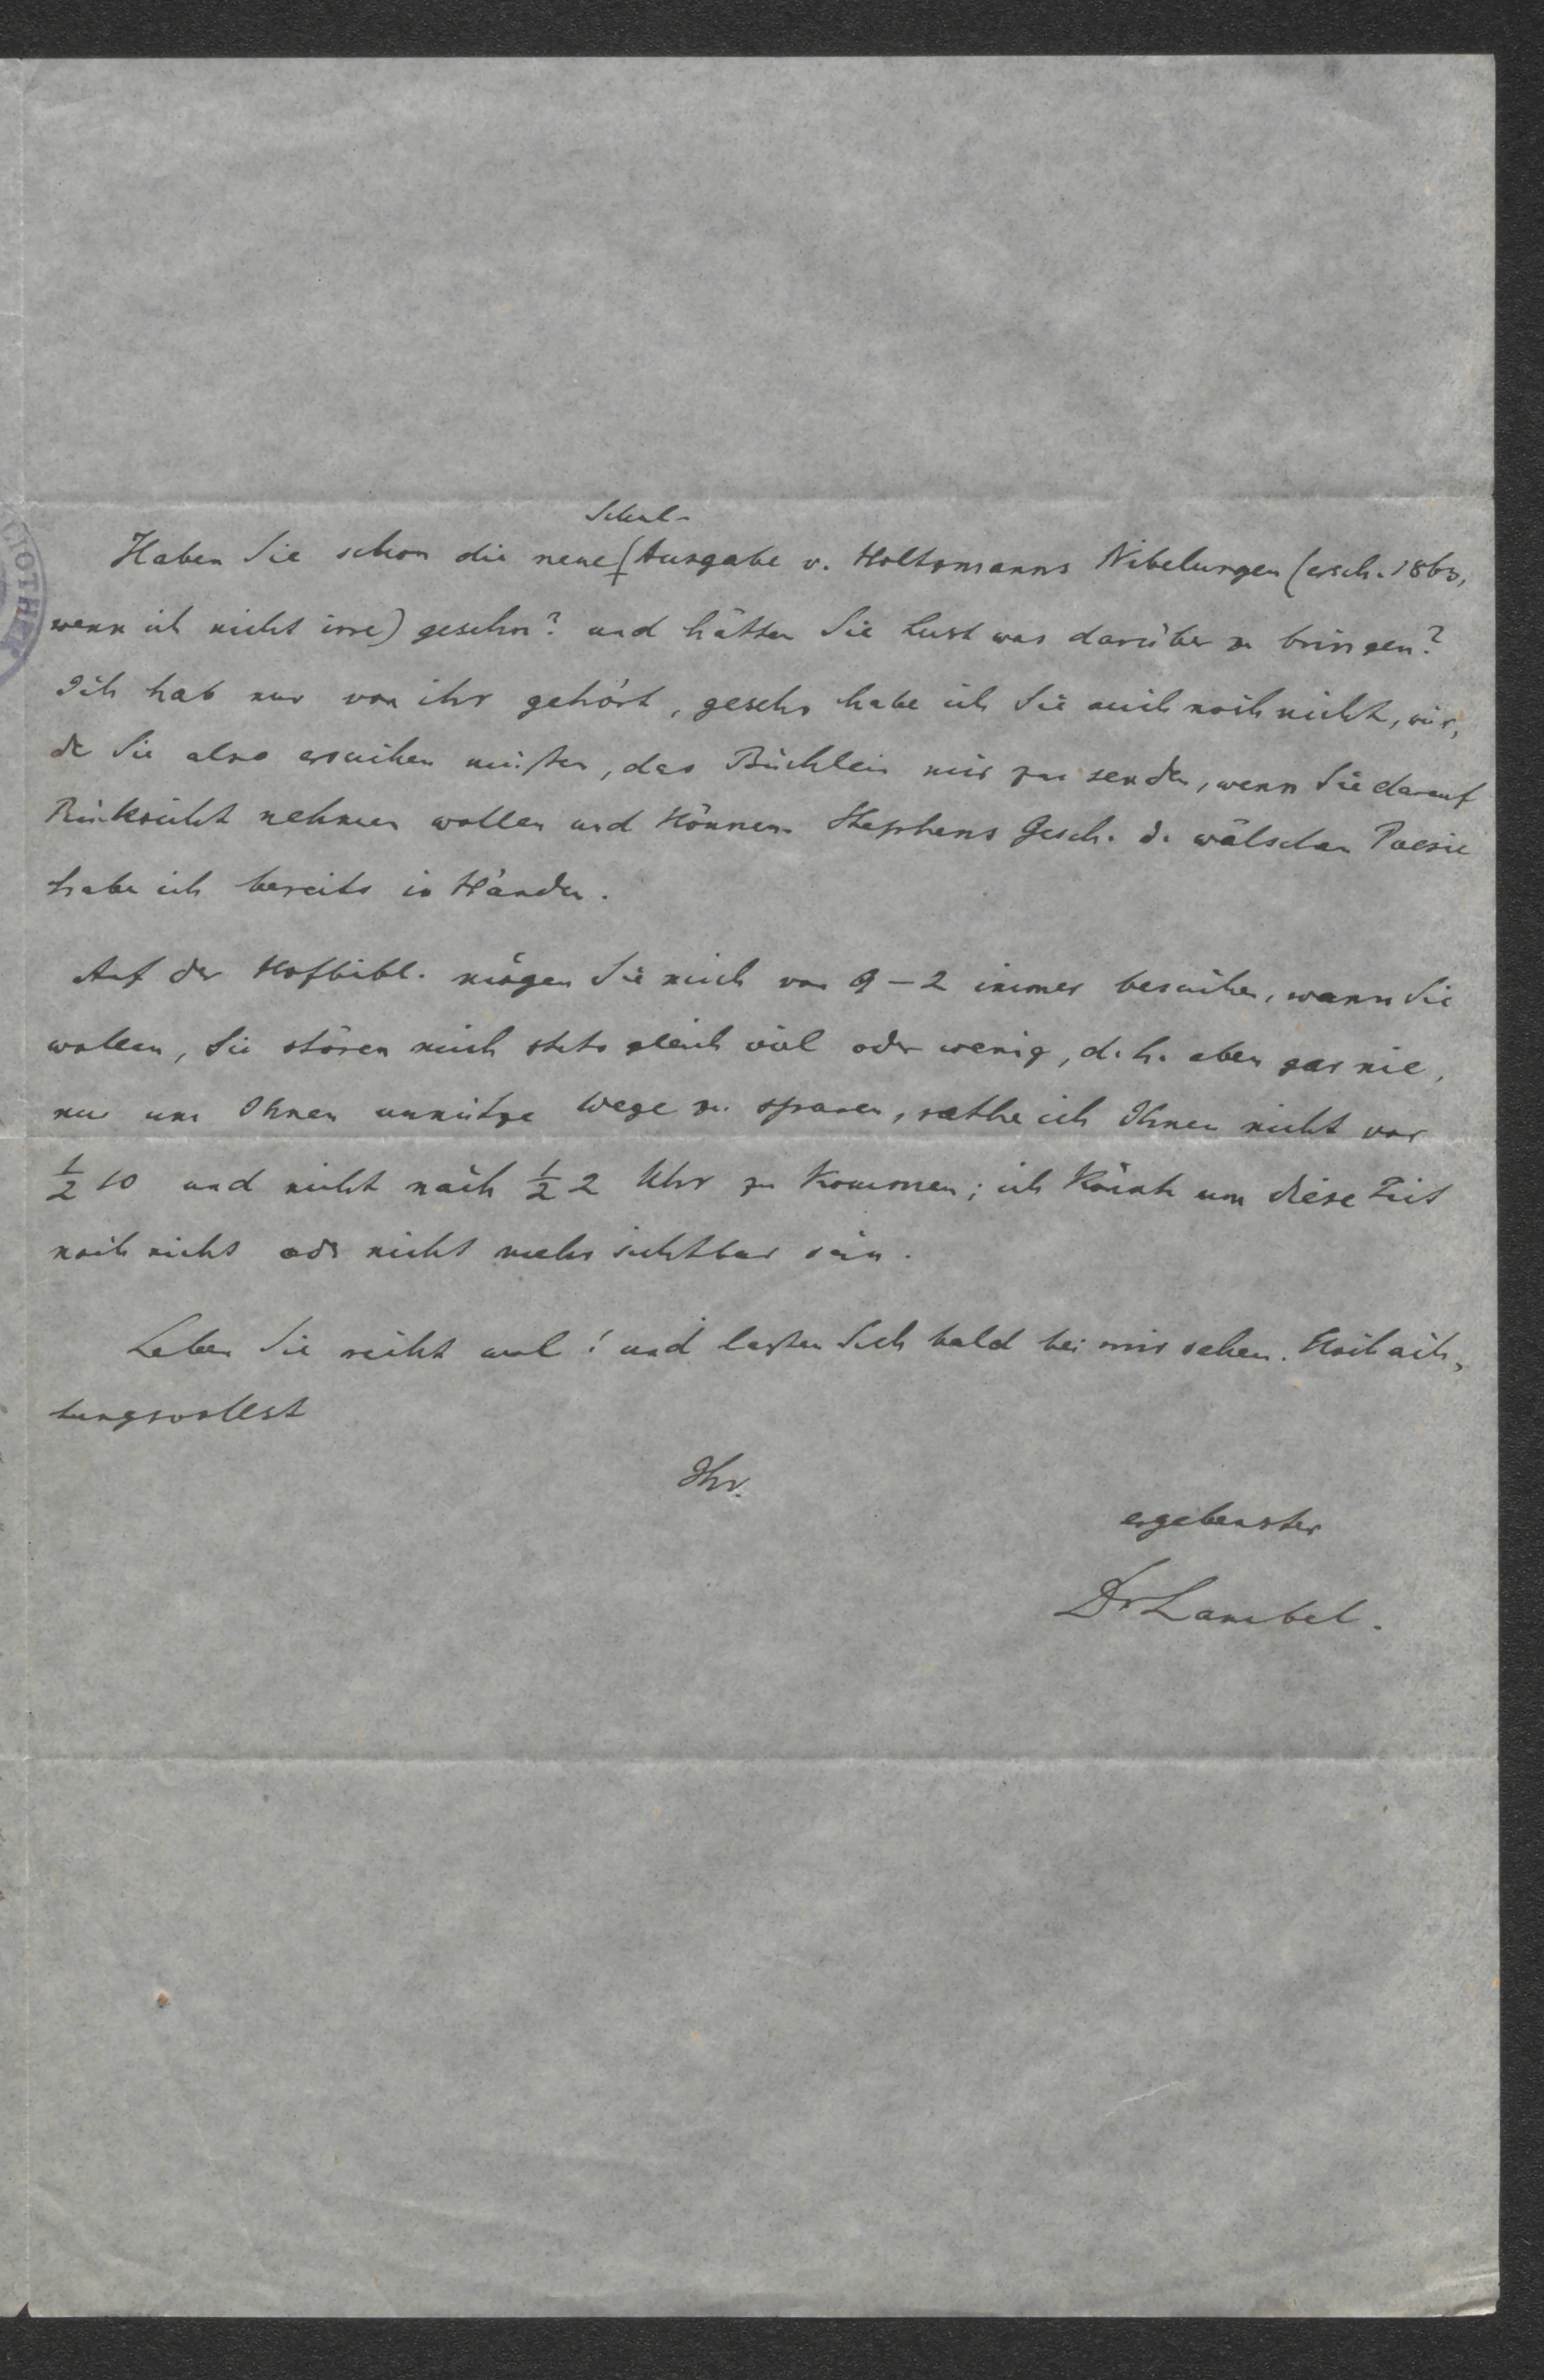 Schul-
Haben Sie schon die neue Ausgabe v. Holtzmanns Nibelungen (ersch. 1863,
wenn ich nicht irre) gesehn? und hätten Sie Lust was darüber zu bringen?
Ich hab nur von ihr gehört, gesehn habe ich Sie auch noch nicht, wür-
de Sie also ersuchen müssen, das Büchlein mir zu senden, wenn Sie darauf
Rücksicht nehmen wollen und können. Stephens Gesch. d. wälschen Poesie
habe ich bereits in Händen.
Auf der Hofbibl. mögen Sie mich von 9-2 immer besuchen, wann Sie
wollen, Sie stören mich stets gleich viel oder wenig, d. h. eben gar nie,
nur um Ihnen unnütze Wege zu sparen, rathe ich Ihnen nicht vor
½ 10 und nicht nach ½ 2 Uhr zu kommen; ich könnte um diese Zeit
noch nicht oder nicht mehr sichtbar sein.
Leben Sie recht wol! und lassen Sich bald bei mir sehen. Hochach-
tungsvollst
Ihr
ergebenster
Dr Lambel.